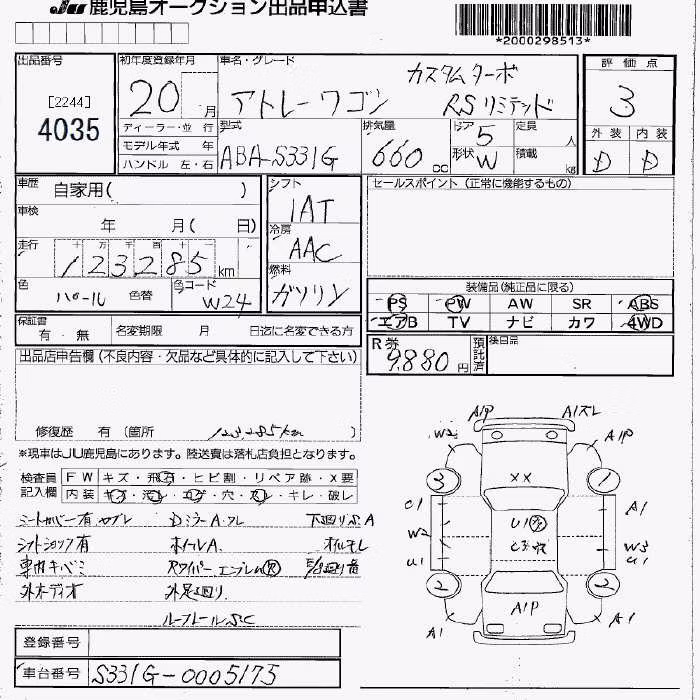 JU 鹿児島オークション出品申込書
*2000298513*
出品番号
[2244]
4035
初年度登録年月
20 月
車名・グレード
カスタムターボ
アトレーワゴン RSリミテッド
評価点
3
外装 内装
D D
ディーラー・並行
モデル年式 年
ハンドル 左・右
型式
ABA-S331G
排気量
660 cc
ドア 5
形状 W
定員 人
積載 kg
車歴 自家用( )
車検 年 月( 日)
走行 十 万 千 百 十 一
123285 km
色 パール 色替
色コード W24
シフト
IAT
冷房
AAC
燃料
ガソリン
セールスポイント (正常に機能するもの)
装備品(純正品に限る)
PS PW AW SR ABS
エアB TV ナビ カワ 4WD
保証書 有・無
名変期限 月 日迄に名変できる方
R券 9,880 円
預託済
後日品
出品店申告欄 (不良内容・欠品など具体的に記入して下さい)
修復歴 有 (箇所 123,285km )
※現車はJU鹿児島にあります。陸送費は落札店負担となります。
検査員記入欄
FW キズ・飛石・ヒビ割・リペア跡・X要
内装 キズ・汚レ・コゲ・穴・スレ・キレ・破レ
シートカバー有 ヤブレ Dミラー A・スレ 下廻りS・A
シフトショック有 ホイールA. オイルモレ
専用キズミ Rワイパーエンブレム欠
外オーディオ 外足廻り.
ルーフレールS・C
A1P A1スレ
W2 A1P
3 XX 1
U1 A1
W2 U1 W3
U1 U1
2 A1P 2
A1 A1
登録番号
車台番号 S331G-0005175